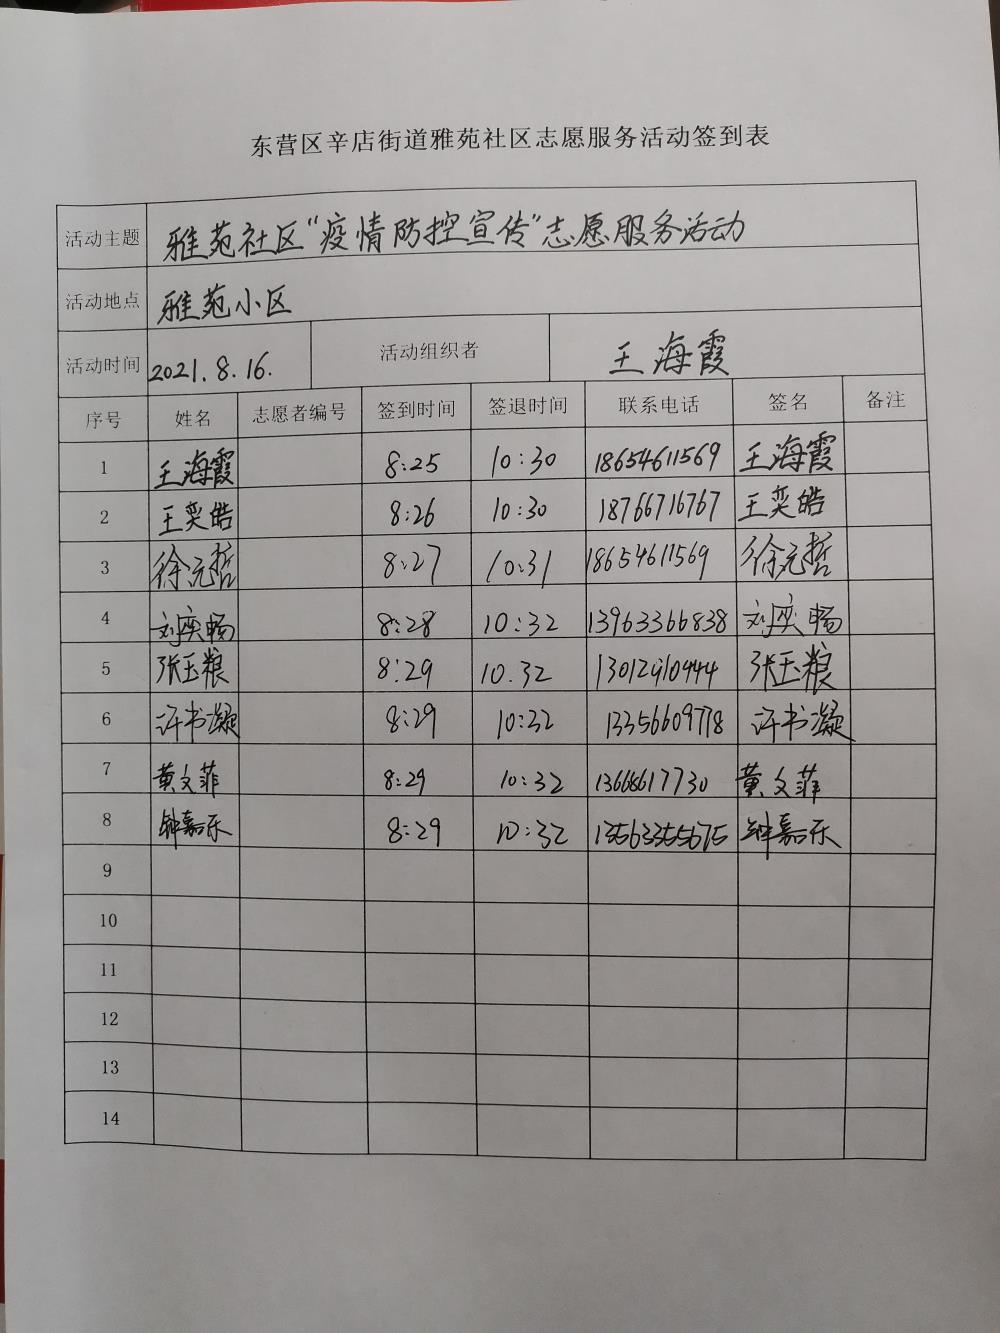 东营区辛店街道雅苑社区志愿服务活动签到表
活动主题 雅苑社区“疫情防控宣传”志愿服务活动
活动地点 雅苑小区
活动时间 2021.8.16. 活动组织者 王海霞
序号 姓名 志愿者编号 签到时间 签退时间 联系电话 签名 备注
1 王海霞 8:25 10:30 18654611569 王海霞
2 王奕皓 8:26 10:30 18766716767 王奕皓
3 徐元哲 8:27 10:31 18654611569 徐元哲
4 刘奕畅 8:28 10:32 13963366838 刘奕畅
5 张玉粮 8:29 10.32 张玉粮
6 许书凝 8:29 10:32 13356609778 许书凝
7 黄文菲 8:29 10:32 黄文菲
8 钟嘉乐 8:29 10:32 13563355675 钟嘉乐
9
10
11
12
13
14